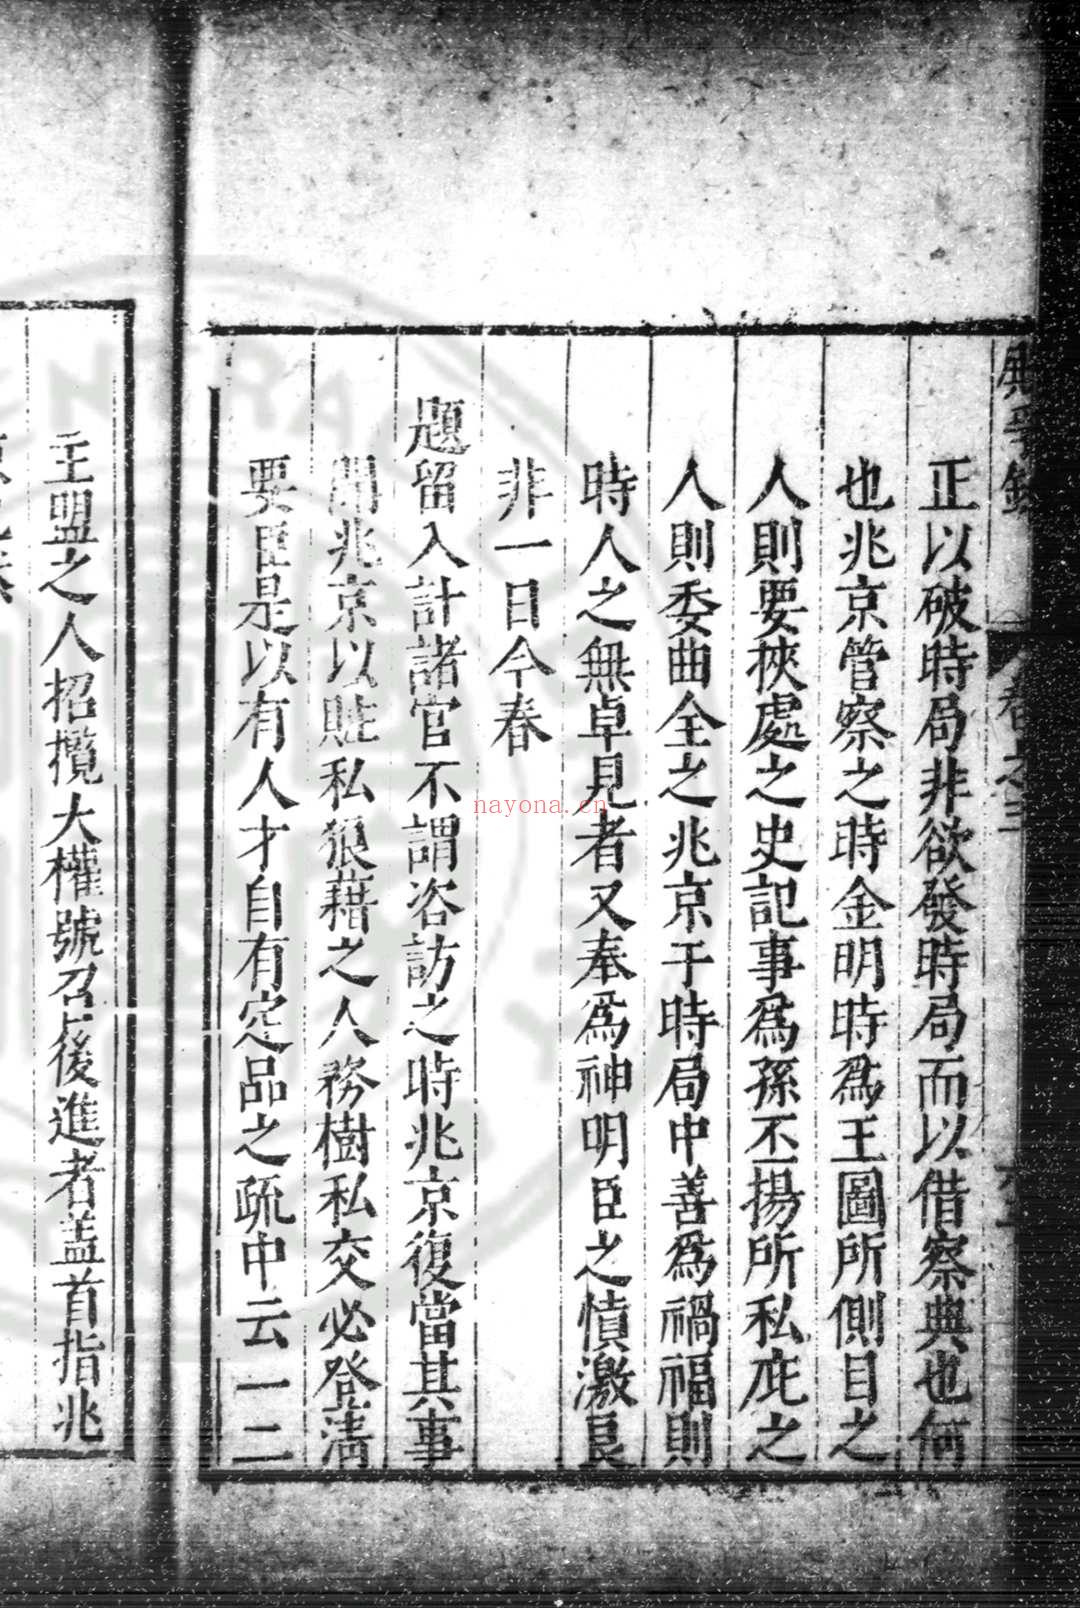 正以破時局非欲發時局而以借察典也何
也兆京管察之時金明時為王圖所側目之
人則要挾處之史記事為孫丕揚所私庇之
人則委曲全之兆京于時局中善為禍福則
時人之無卓見者又奉為神明臣之憤激良
非一日今春
題留入計諸官不謂咨訪之時兆京復當其事
聞兆京以賍私狼藉之人務樹私交必登淸
要臣是以有人才自有定品之疏中云一二
主盟之人招攬大權號召後進者盖首指兆
nayona.cn